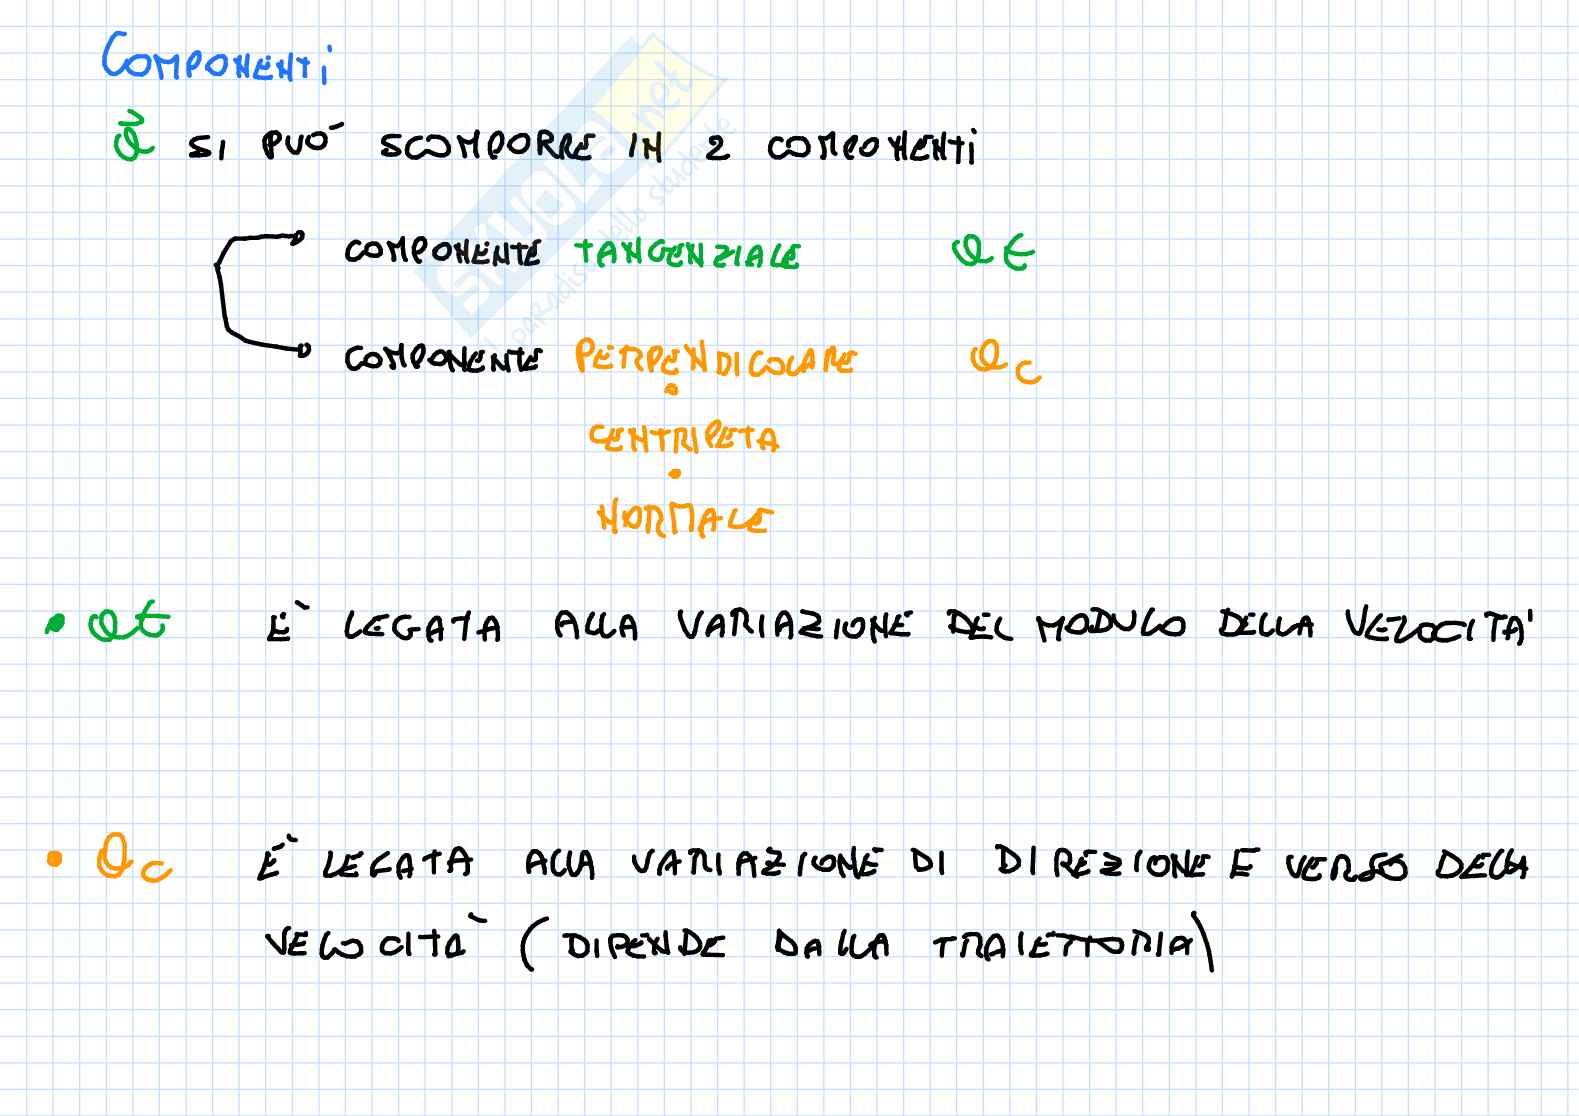 COMPONENTI
a⃗ SI PUÒ SCOMPORRE IN 2 COMPONENTI
COMPONENTE TANGENZIALE at
COMPONENTE PERPENDICOLARE ac
•
CENTRIPETA
•
NORMALE
• at È LEGATA ALLA VARIAZIONE DEL MODULO DELLA VELOCITA'
• ac È LEGATA ALLA VARIAZIONE DI DIREZIONE E VERSO DELLA
VELOCITÀ (DIPENDE DALLA TRAIETTORIA)
skuola.net
il paradiso dello studente